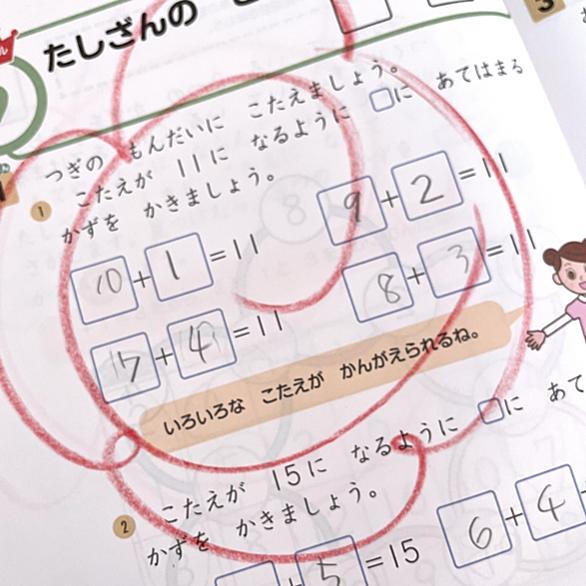 3
たしざんの
つぎの もんだいに こたえましょう。
① こたえが 11に なるように □に あてはまる
かずを かきましょう。
10+1=11
9+2=11
7+4=11
8+3=11
いろいろな こたえが かんがえられるね。
② こたえが 15に なるように □に あて
かずを かきましょう。
+5=15
6+4+